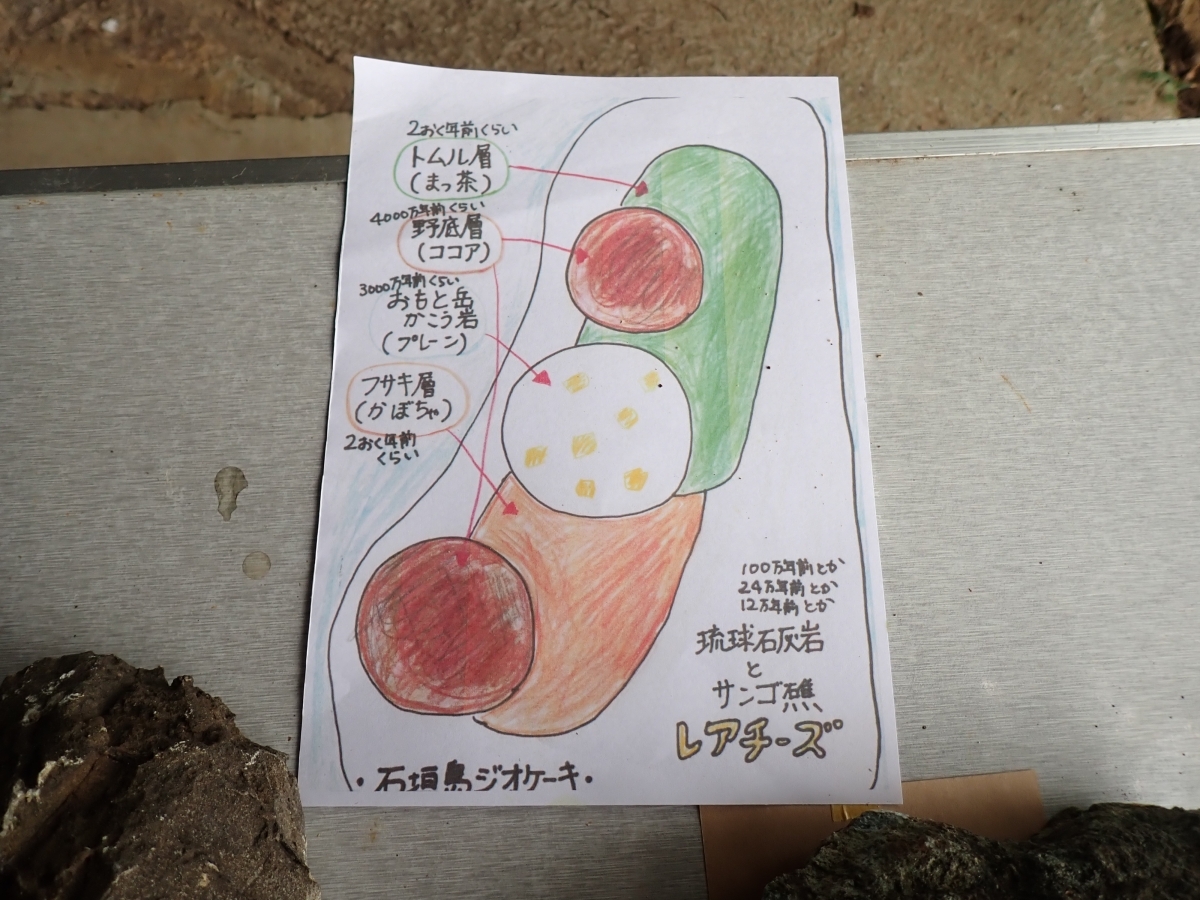 2おく年前くらい
トムル層
(まっ茶)
4000万年前くらい
野底層
(ココア)
3000万年前くらい
おもと岳
かこう岩
(プレーン)
フサキ層
(かぼちゃ)
2おく年前
くらい
100万年前とか
24万年前とか
12万年前とか
琉球石灰岩
と
サンゴ礁
レアチーズ
・石垣島ジオケーキ・